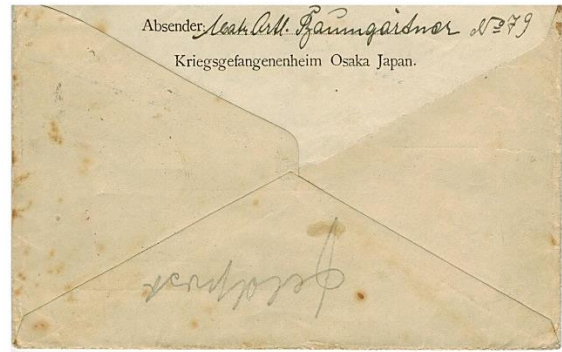 Absender: Matr. Artl. Baumgärtner Nº 79
Kriegsgefangenenheim Osaka Japan.